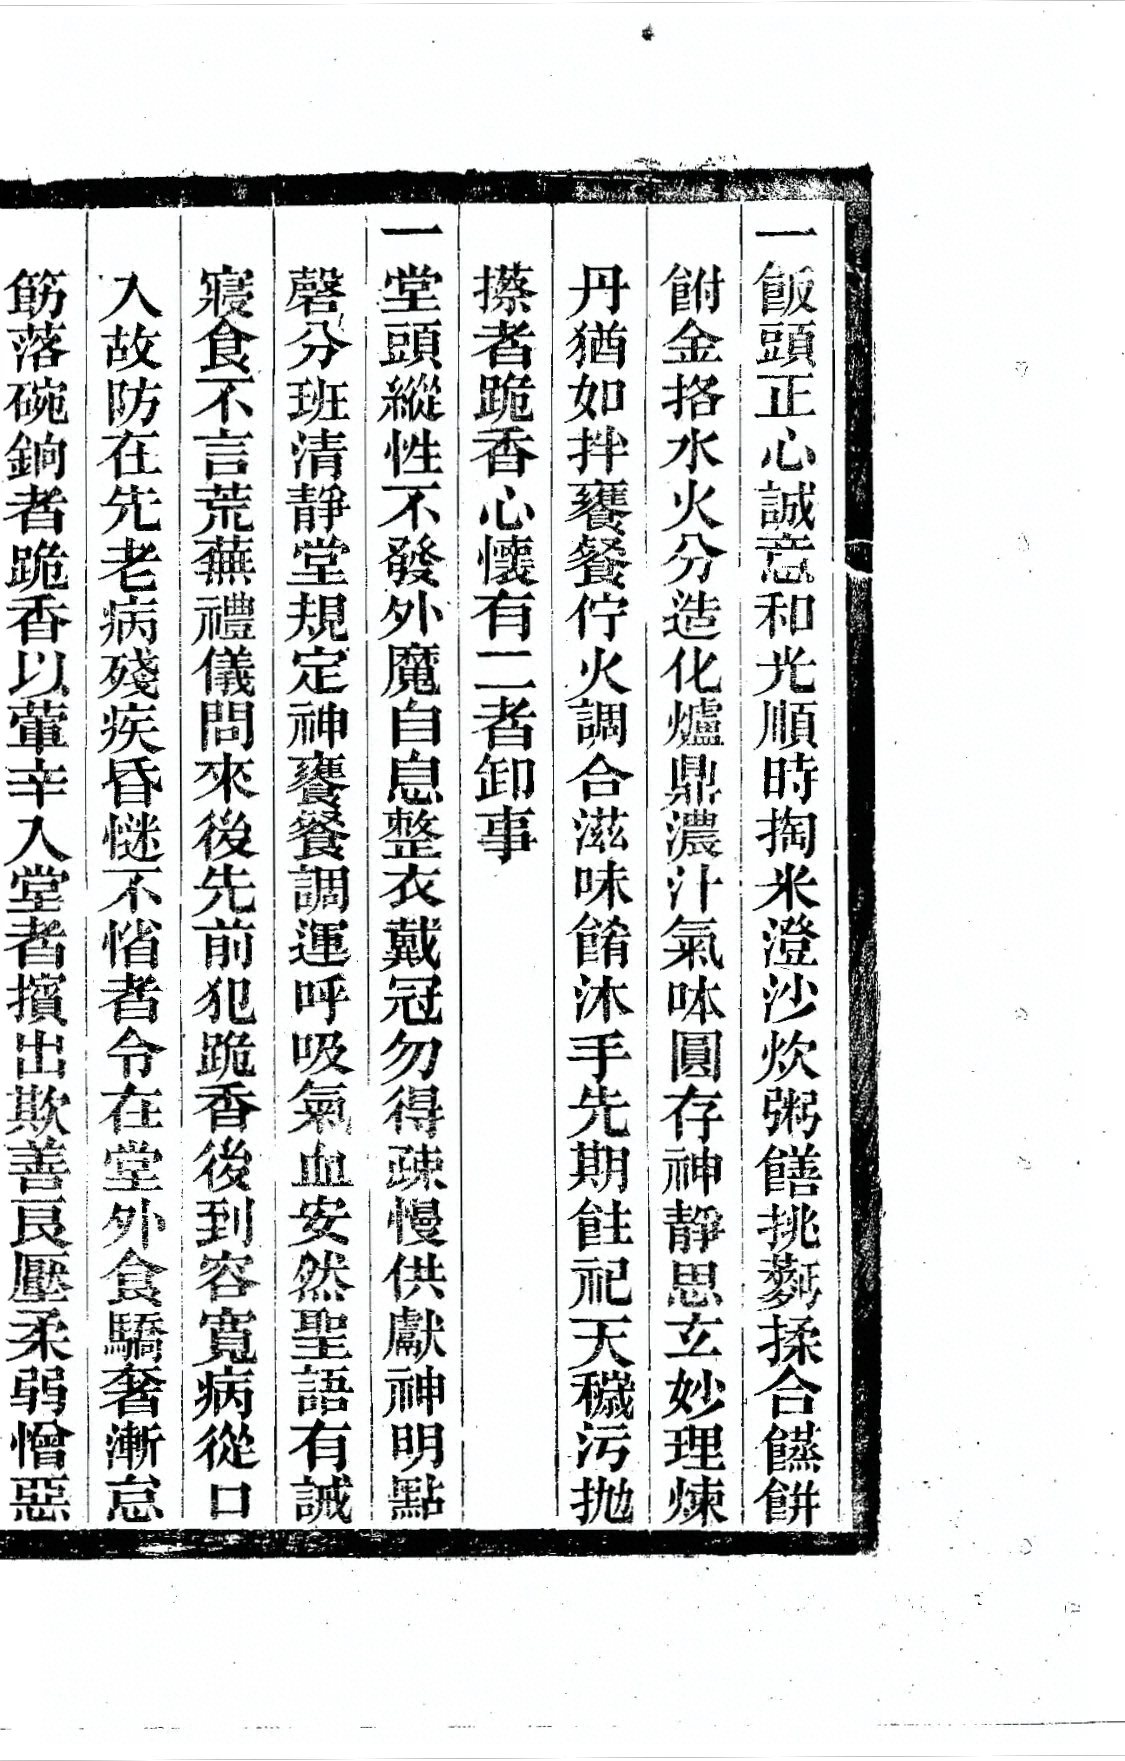 一飯頭正心誠意和光順時掏米澄沙炊粥饍挑麪揉合饝餅
餔金挌水火分造化爐鼎濃汁氣味圓存神靜思玄妙理煉
丹猶如拌饔餐佇火調合滋味餚沐手先期飳祀天穢污拋
搽者跪香心懷有二者卸事
一堂頭縱性不發外魔自息整衣戴冠勿得疎慢供獻神明點
磬分班清靜堂規定神饔餐調運呼吸氣血安然聖語有誡
寢食不言荒蕪禮儀問來後先前犯跪香後到容寬病從口
入故防在先老病殘疾昏憽不惜者令在堂外食驕奢漸怠
筯落碗銄者跪香以葷辛入堂者擯出欺善良壓柔弱憎惡